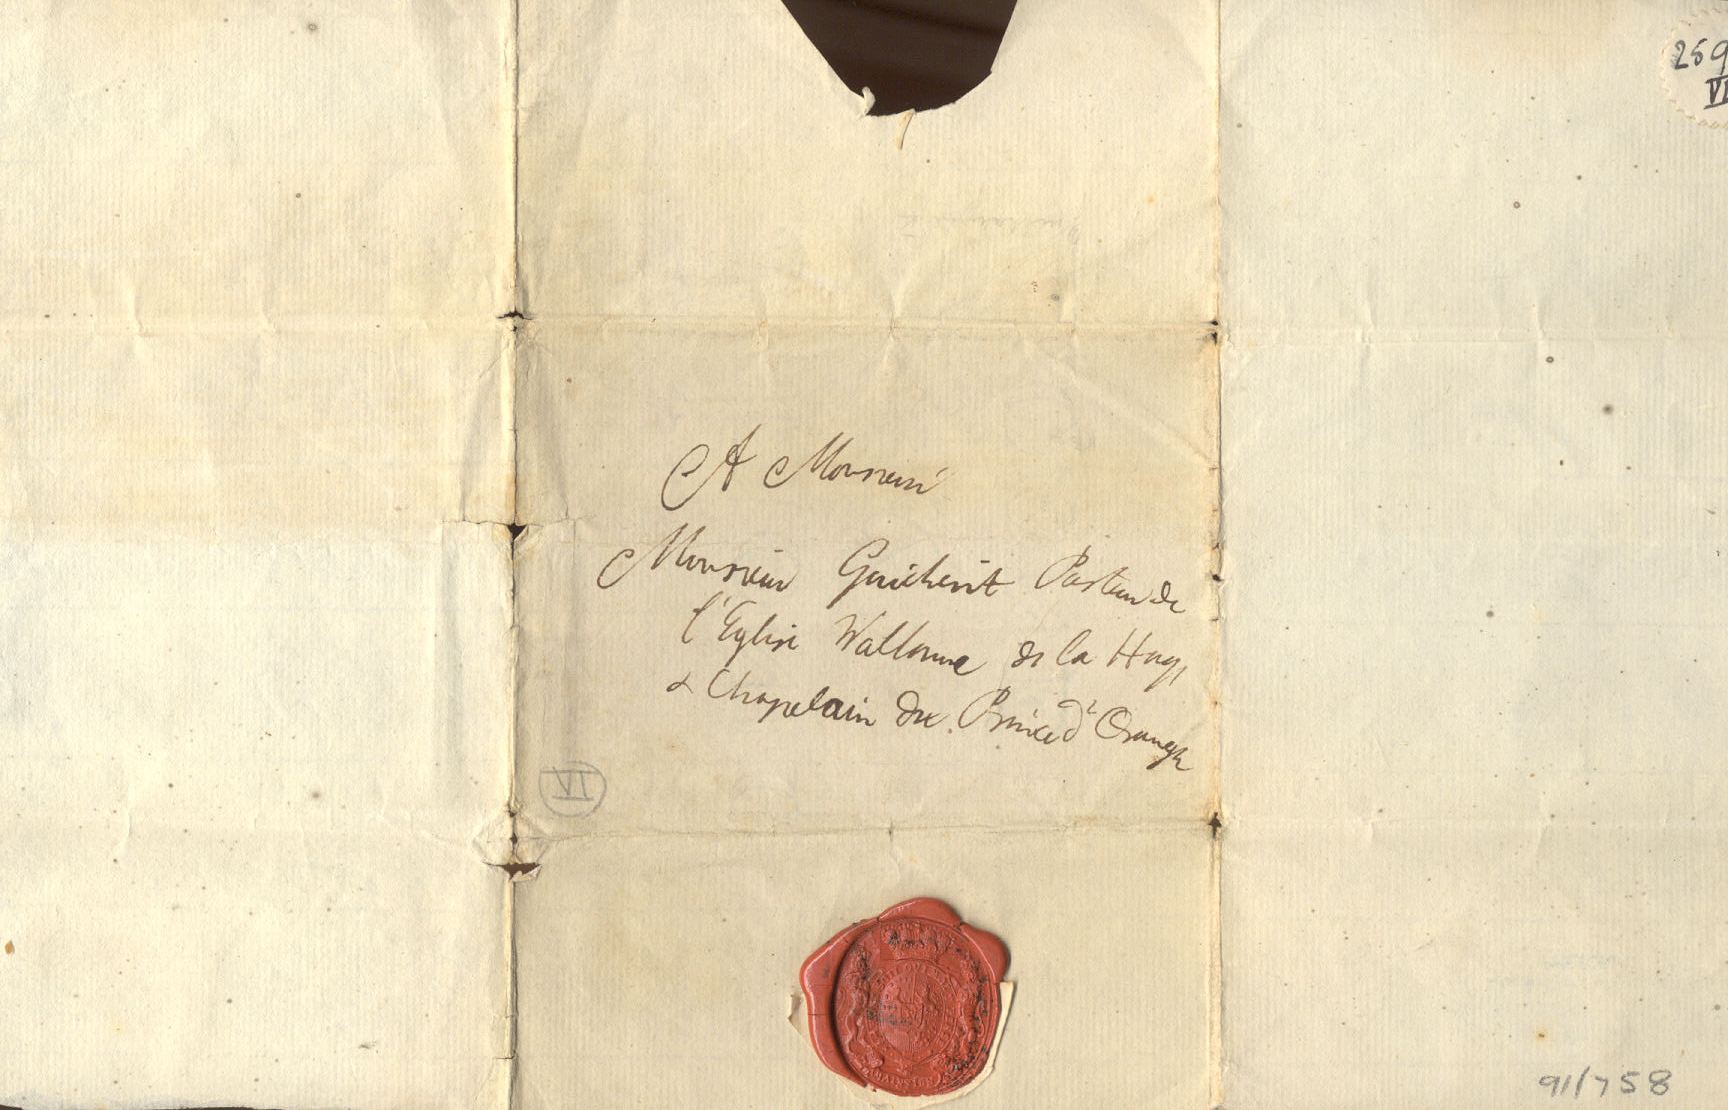 259
VI
A Monsieur
Monsieur Guicherit Pasteur de
l'Eglise Wallonne de la Haye
& Chapelain du Prince d'Orange
VI
91/758